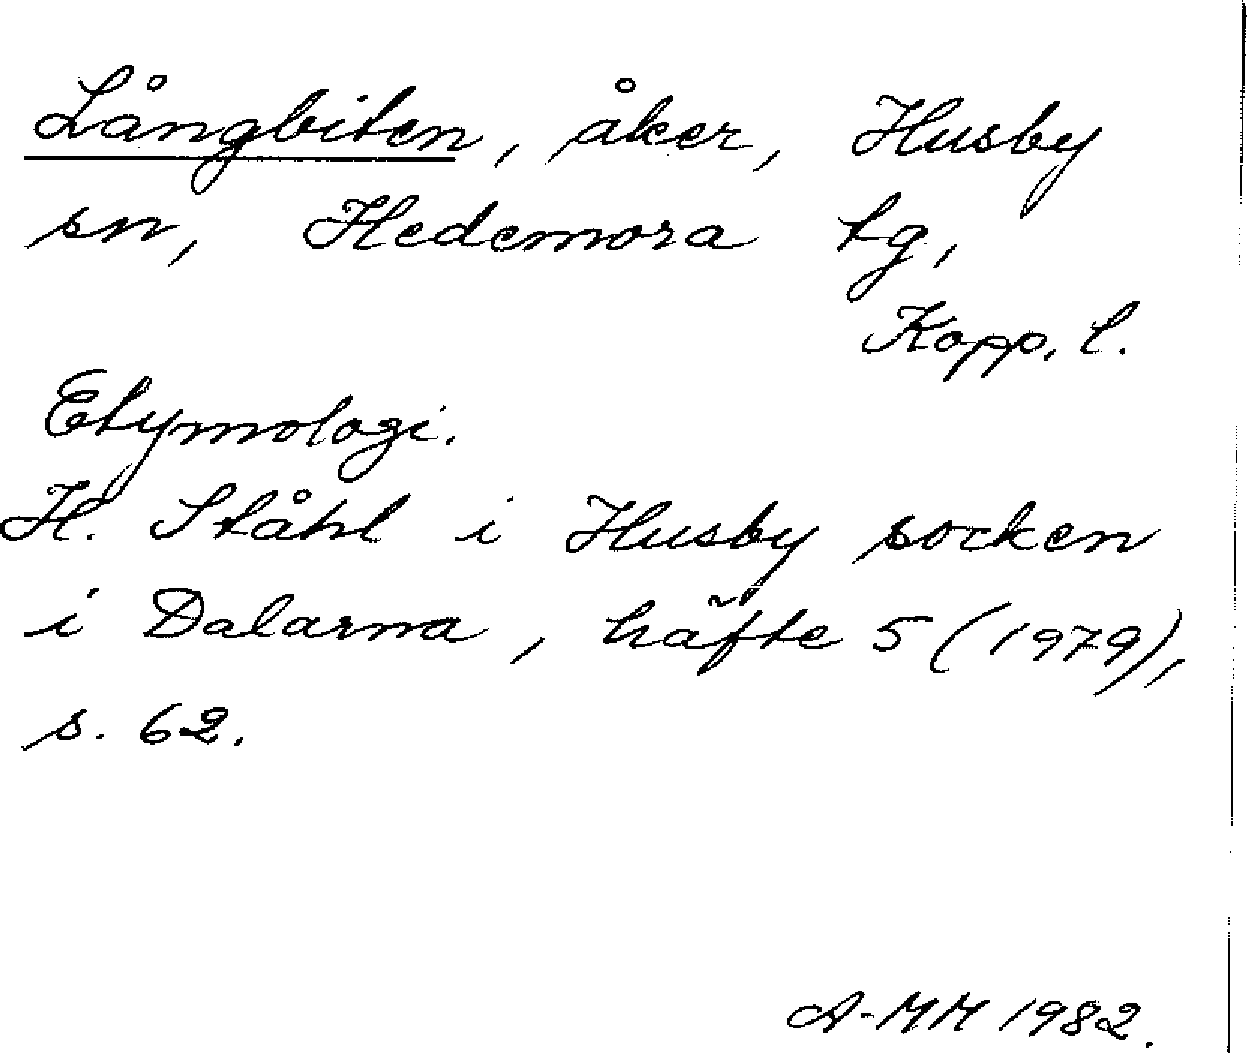 Långbiten, åker, Husby
sn, Hedemora tg,
Kopp. l.
Etymologi.
H. Ståhl i Husby socken
i Dalarna, häfte 5 (1979),
s. 62.
A-MM 1982.